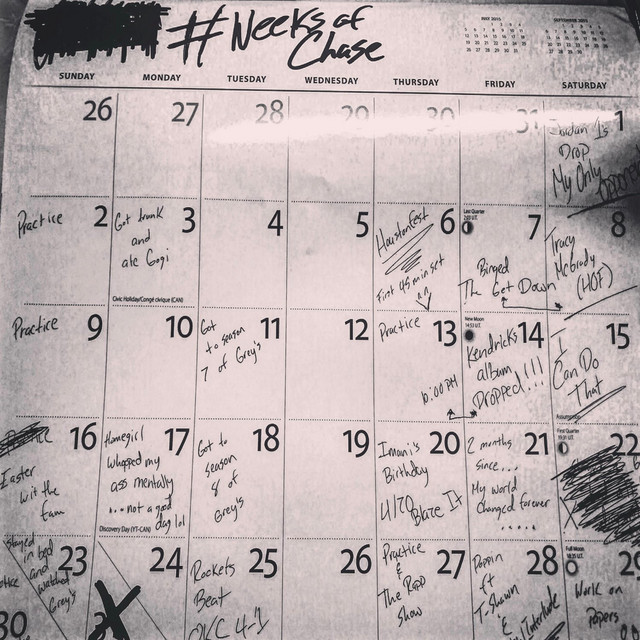 #Weeks of
Chase
JULY 2015
SEPTEMBER 2015
SUNDAY MONDAY TUESDAY WEDNESDAY THURSDAY FRIDAY SATURDAY
26 27 28 29 30 31 1
Jordan 1s
Drop
My Only
2 3 4 5 6 7 8
Practice
Got drunk
and
ate Gogi
Civic Holiday/Congé civique (CAN)
Houstonfest
First 45 min set
Last Quarter
Binged
The Get Down
Tracy
McGrady
(HOF)
9 10 11 12 13 14 15
Practice
Got
to season
7 of Grey's
Practice
10:00 PM
New Moon
Kendricks
album
Dropped!!!!
I
Can Do
That
Assumption
16 17 18 19 20 21 22
Easter
wit the
fam
Homegirl
whopped my
ass mentally
...not a good
day lol
Discovery Day (YT-CAN)
Got to
season
8 of
Grey's
Imani's
Birthday
4/20
Blaze It
2 months
since...
My world
changed forever
.....
First Quarter
23 24 25 26 27 28 29
stayed
in bed
and
watched
Grey's
X
Rockets
Beat
OKC 4-1
Practice
&
The
show
Poppin
ft
T. Shawn
&
Full Moon
Work on
Papers
30